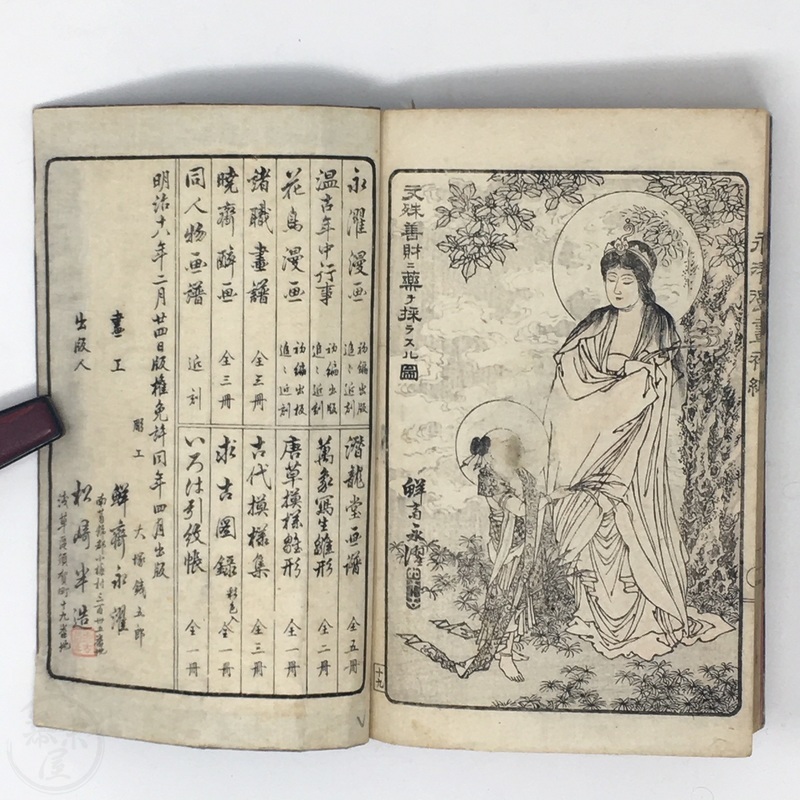 文殊善財ニ藥ヲ採ラスル圖
鮮斎永濯
十九
永濯漫画 初編出版 追々近刻
温古年中行事 初編出版 追々近刻
花鳥漫画 初編出板 追々近刻
諸職畫譜 全三冊
暁斎酔画 全三冊
同人物画譜 近刻
潜龍堂画譜 全五冊
萬象写生雛形 全二冊
唐草模様雛形 全一冊
古代模様集 全三冊
求古図録 彩色入 全一冊
いろは引紋帳 全一冊
明治十八年二月廿四日版權免許同年四月出版
彫工 大塚銕五郎
畫工 鮮齋永濯
南葛飾郡小梅村三百廿五番地
出版人 松崎半造
浅草区須賀町十九番地